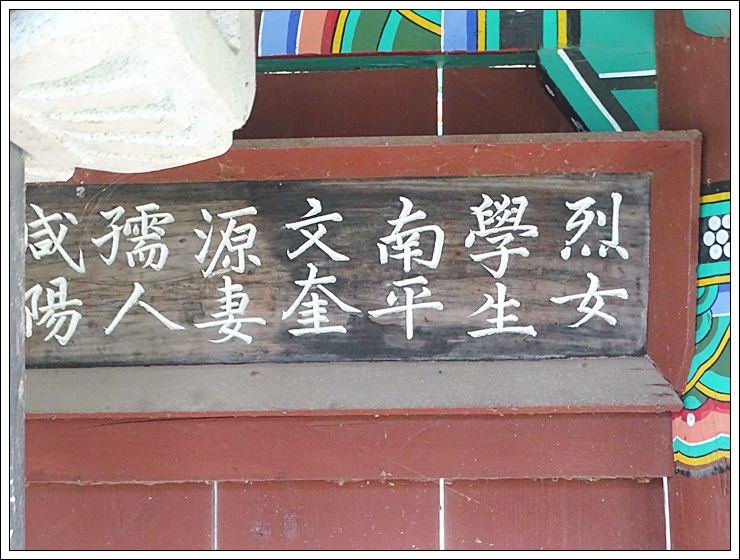 烈女
學生
南平
文奎
源妻
孺人
咸陽